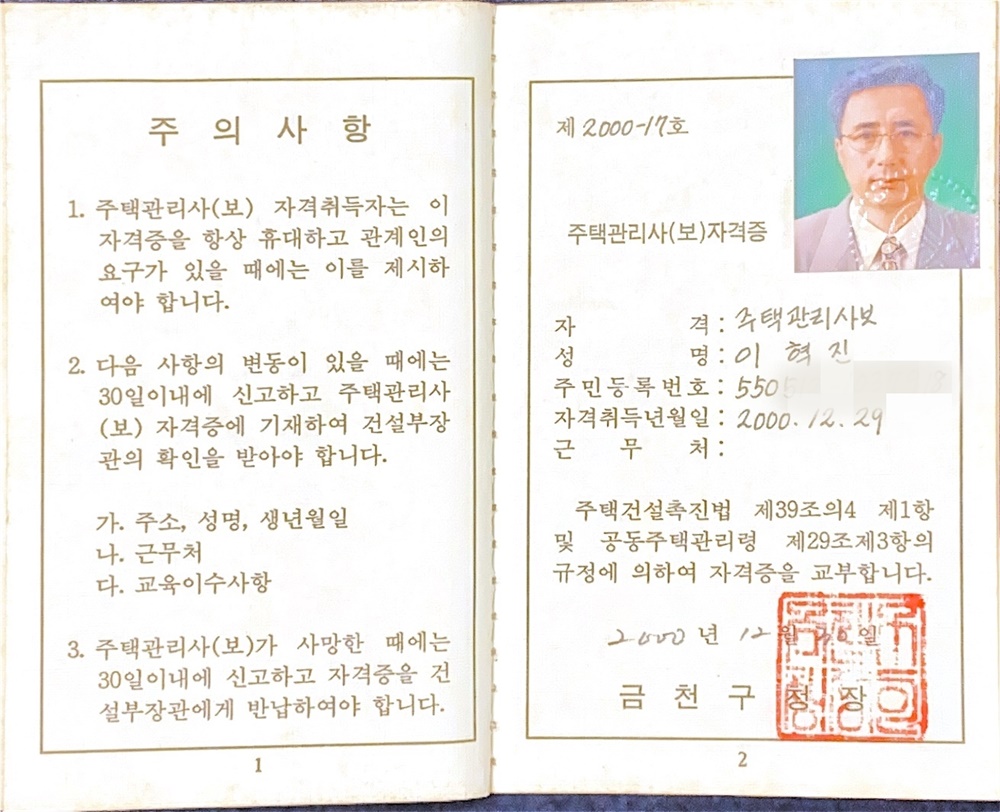 주 의 사 항
1. 주택관리사(보) 자격취득자는 이
자격증을 항상 휴대하고 관계인의
요구가 있을 때에는 이를 제시하
여야 합니다.
2. 다음 사항의 변동이 있을 때에는
30일이내에 신고하고 주택관리사
(보) 자격증에 기재하여 건설부장
관의 확인을 받아야 합니다.
가. 주소, 성명, 생년월일
나. 근무처
다. 교육이수사항
3. 주택관리사(보)가 사망한 때에는
30일이내에 신고하고 자격증을 건
설부장관에게 반납하여야 합니다.
1
제 2000-17호
주택관리사(보)자격증
자 격 : 주택관리사보
성 명 : 이 혁 진
주민등록번호 : 5505
자격취득년월일 : 2000. 12. 29
근 무 처 :
주택건설촉진법 제39조의4 제1항
및 공동주택관리령 제29조제3항의
규정에 의하여 자격증을 교부합니다.
2000 년 12 월 30 일
금 천 구 청 장
2